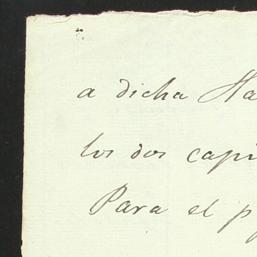 a dicha Ha
los dos capi
Para el p